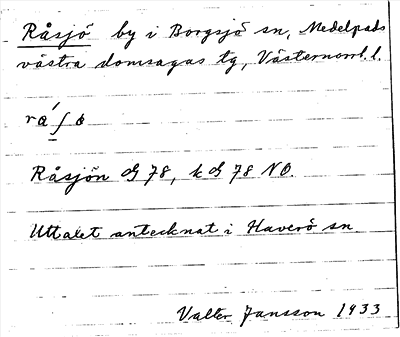 Råsjö by i Borgsjö sn, Medelpads
västra domsagas tg, Västernorrl. l.
Råsjön G 78, k G 78 NO.
Uttalet antecknat i Haverö sn
Valter Jansson 1933